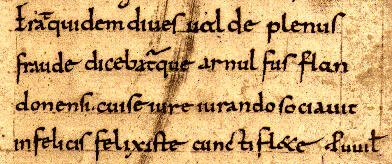 Erat quidem dives ual de plenus
fraude dicebatque arnul fus flan
donensi. cui se iure iurando sociavit
infelicis felix iste cuncti flexe